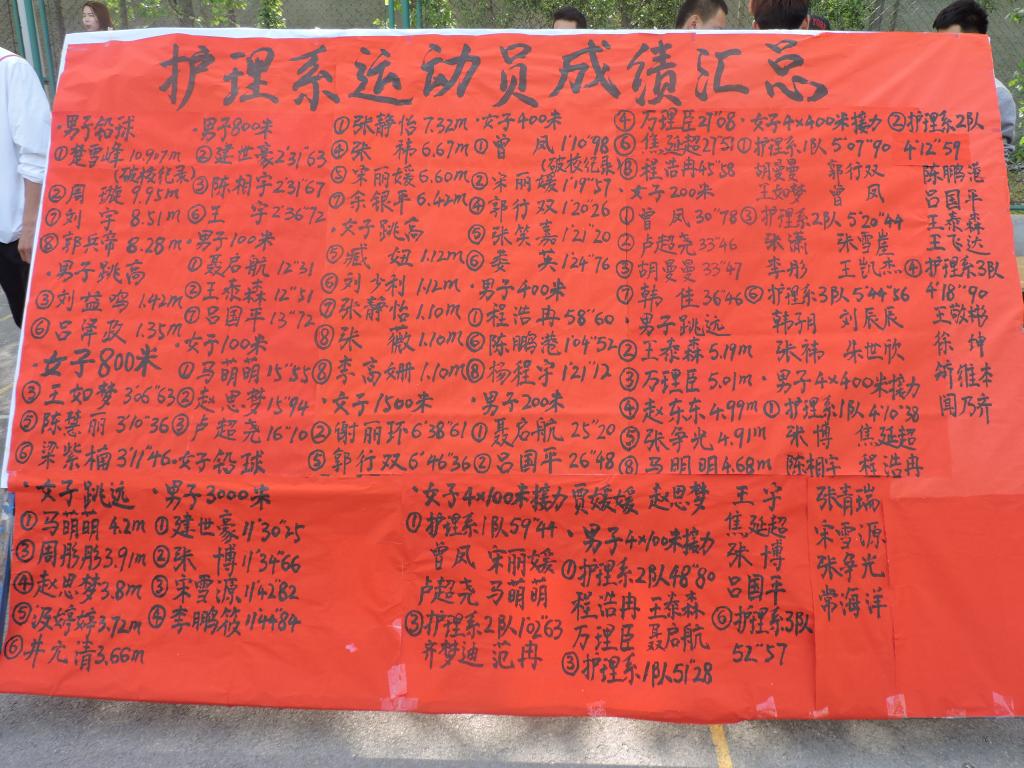 护理系运动员成绩汇总
·男子铅球
①楚雪峰 10.907m
(破校纪录)
②周 璇 9.95m
⑦刘 宇 8.51m
⑧郭兵帝 8.28m
·男子跳高
③刘益鸣 1.42m
⑥吕泽政 1.35m
·女子800米
③王如梦 3'06"63
⑤陈慧丽 3'10"36
⑥梁紫楠 3'11"46
·男子800米
②建世豪 2'31"63
③陈相宇 2'31"67
⑥王 宇 2'36"72
·男子100米
①聂启航 12"31
②王泰森 12"51
⑦吕国平 13"72
·女子100米
①马萌萌 15"55
②赵思梦 15"94
③卢超尧 16"10
·女子铅球
①张静怡 7.32m
④张 祎 6.67m
⑤宋丽媛 6.60m
⑦余银平 6.42m
·女子跳高
⑤臧 妞 1.12m
⑥刘少利 1.12m
⑦张静怡 1.10m
⑧张 薇 1.10m
⑧李高姗 1.10m
·女子1500米
②谢丽环 6'38"61
⑤郭行双 6'46"36
·女子400米
①曾 凤 1'10"98
(破校纪录)
②宋丽媛 1'19"57
④郭行双 1'20"26
⑤张笑嘉 1'21"20
⑥娄 英 1'24"76
·男子400米
①程浩冉 58"60
⑥陈鹏港 1'04"52
⑧杨程宇 1'21"12
·男子200米
①聂启航 25"20
②吕国平 26"48
④万理臣 27"08
⑥焦延超 27"51
⑧程浩冉 45"58
·女子200米
①曾 凤 30"78
②卢超尧 33"46
③胡曼曼 33"47
⑦韩 佳 36"46
男子跳远
②王泰森 5.19m
③万理臣 5.01m
④赵东东 4.99m
⑤张争光 4.91m
⑧马明明 4.68m
·女子4×400米接力
①护理系1队 5'07"90
胡曼曼 郭行双
王如梦 曾 凤
③护理系2队 5'20"44
张潇 张雪崖
李彤 王凯杰
⑥护理系3队 5'44"56
韩子月 刘辰辰
张祎 朱世欣
·男子4×400米接力
①护理系1队 4'10"38
张博 焦延超
陈相宇 程浩冉
②护理系2队
4'12"59
陈鹏港
吕国平
王泰森
王飞达
④护理系3队
4'18"90
王敬彬
徐 坤
维本
闻乃齐
·女子跳远
①马萌萌 4.2m
③周彤彤 3.91m
④赵思梦 3.8m
⑤汲婷婷 3.72m
⑥井元清 3.66m
·男子3000米
①建世豪 11'30"25
②张 博 11'34"66
③宋雪源 11'42"82
④李鹏筱 11'44"84
·女子4×100米接力
①护理系1队 59"44
曾凤 宋丽媛
卢超尧 马萌萌
③护理系2队 1'02"63
齐梦迪 范冉
贾媛媛 赵思梦
·男子4×100米接力
①护理系2队 48"80
程浩冉 王泰森
万理臣 聂启航
③护理系1队 51"28
王宇
焦延超
张博
吕国平
⑥护理系3队
52"57
张青瑞
宋雪源
张争光
常海洋